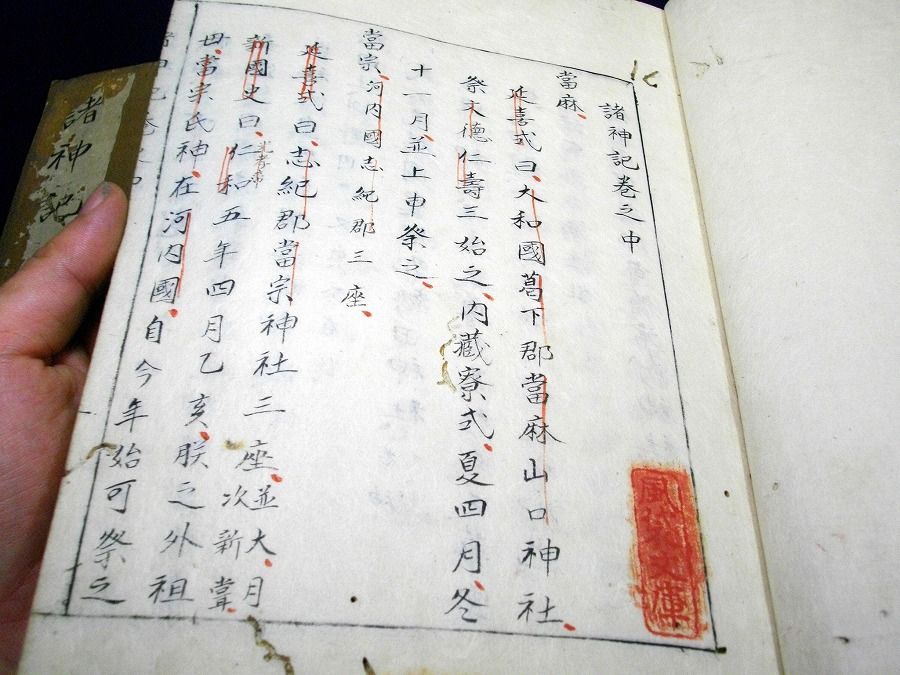 諸神記巻之中
當麻、
延喜式曰、大和國葛下郡當麻山口神社、
祭文德仁壽三始之、内藏寮式、夏四月、冬
十一月、並上申祭之、
當宗、河内國志紀郡三座、
延喜式曰、志紀郡當宗神社三座、並大、月
次新甞、
新國史曰、仁和五年四月乙亥、朕之外祖
光孝帝
毋、當宗氏神、在河内國、自今年始可祭之
諸神記